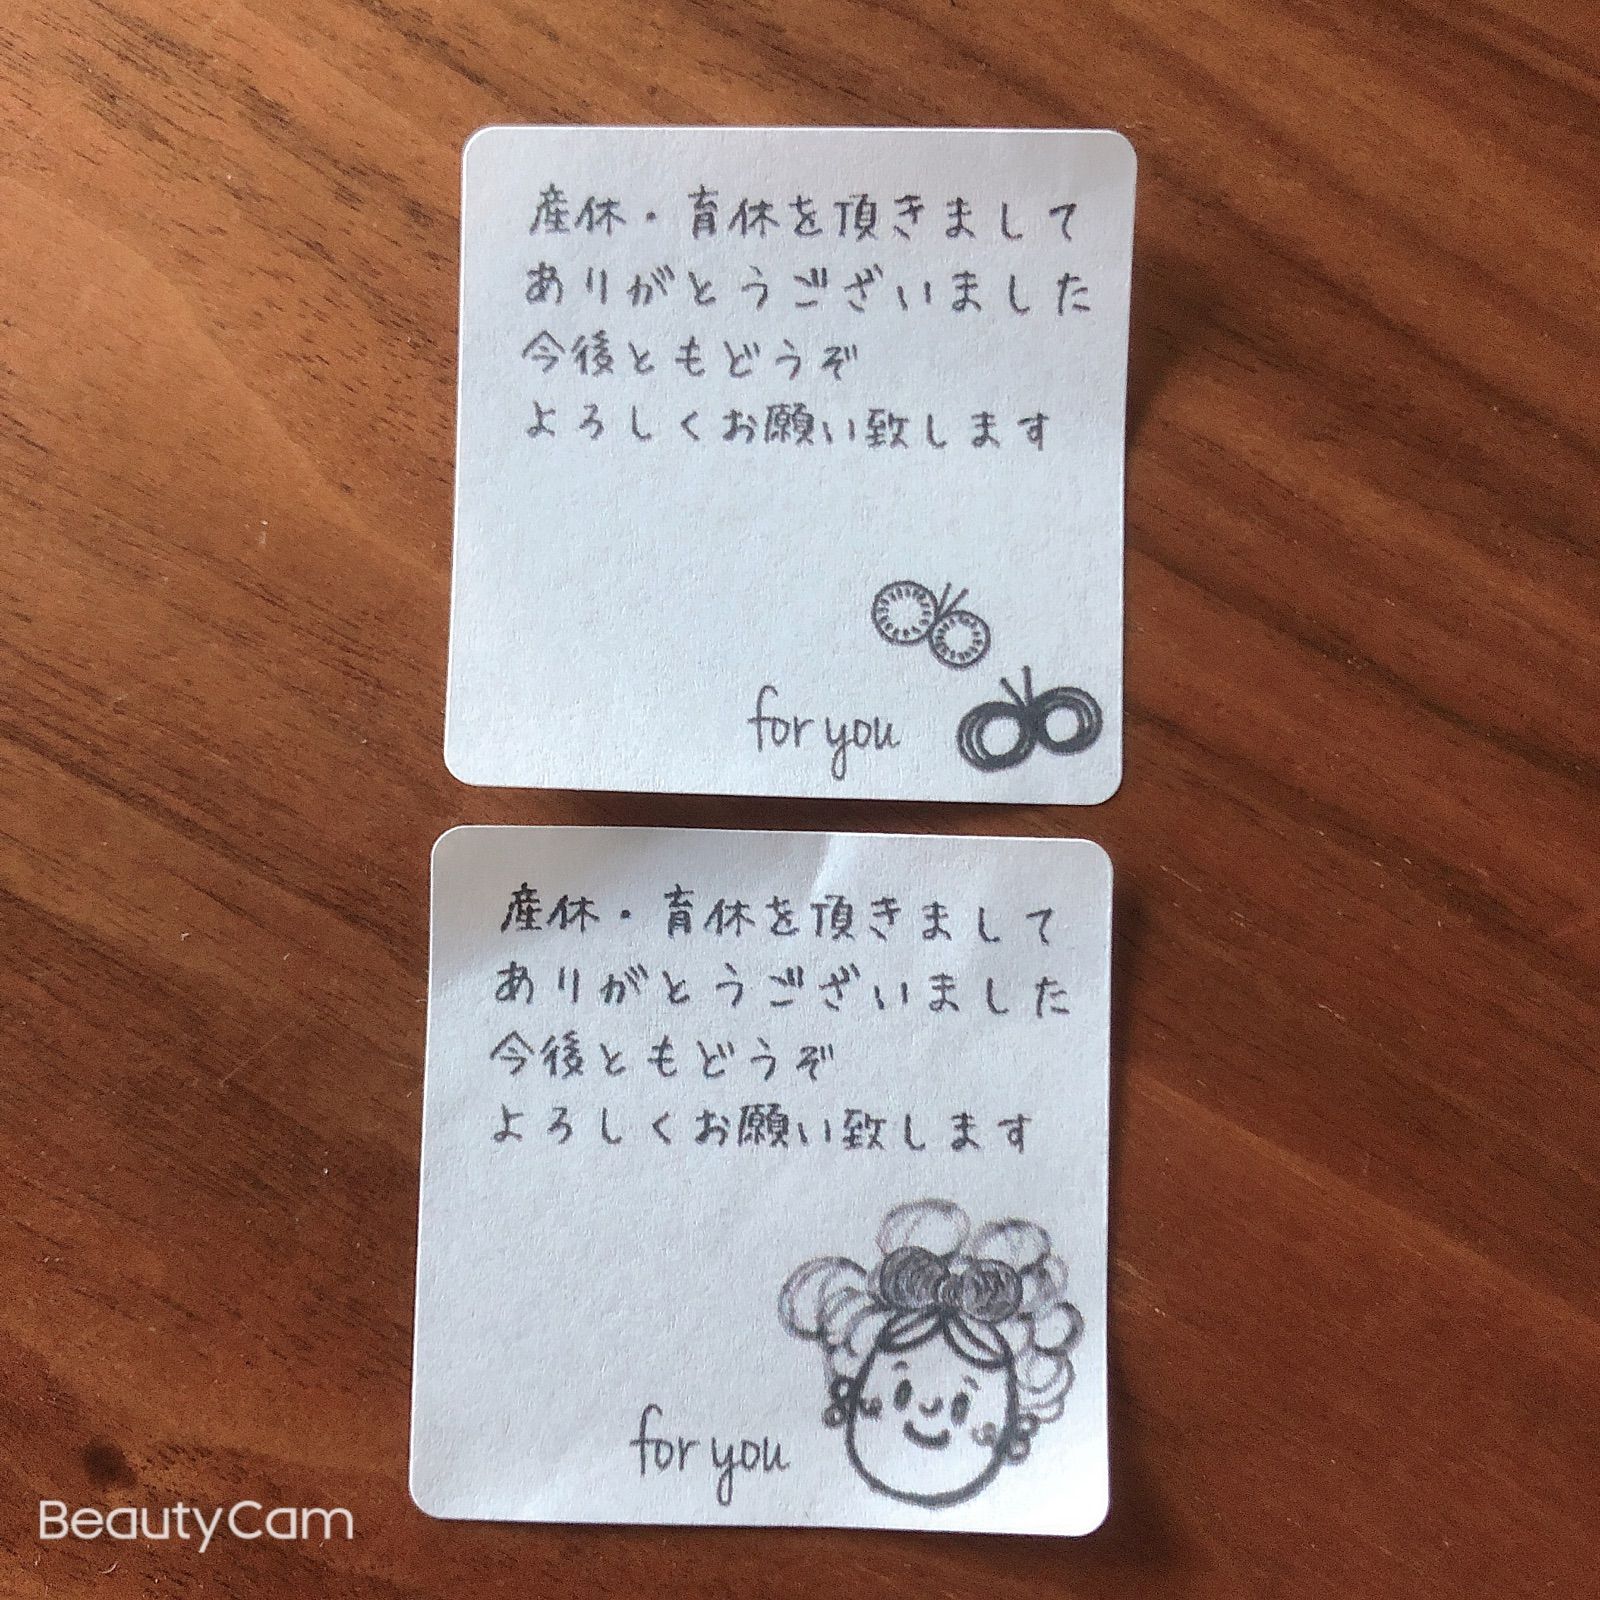 産休・育休を頂きまして
ありがとうございました
今後ともどうぞ
よろしくお願い致します
for you
産休・育休を頂きまして
ありがとうございました
今後ともどうぞ
よろしくお願い致します
for you
BeautyCam